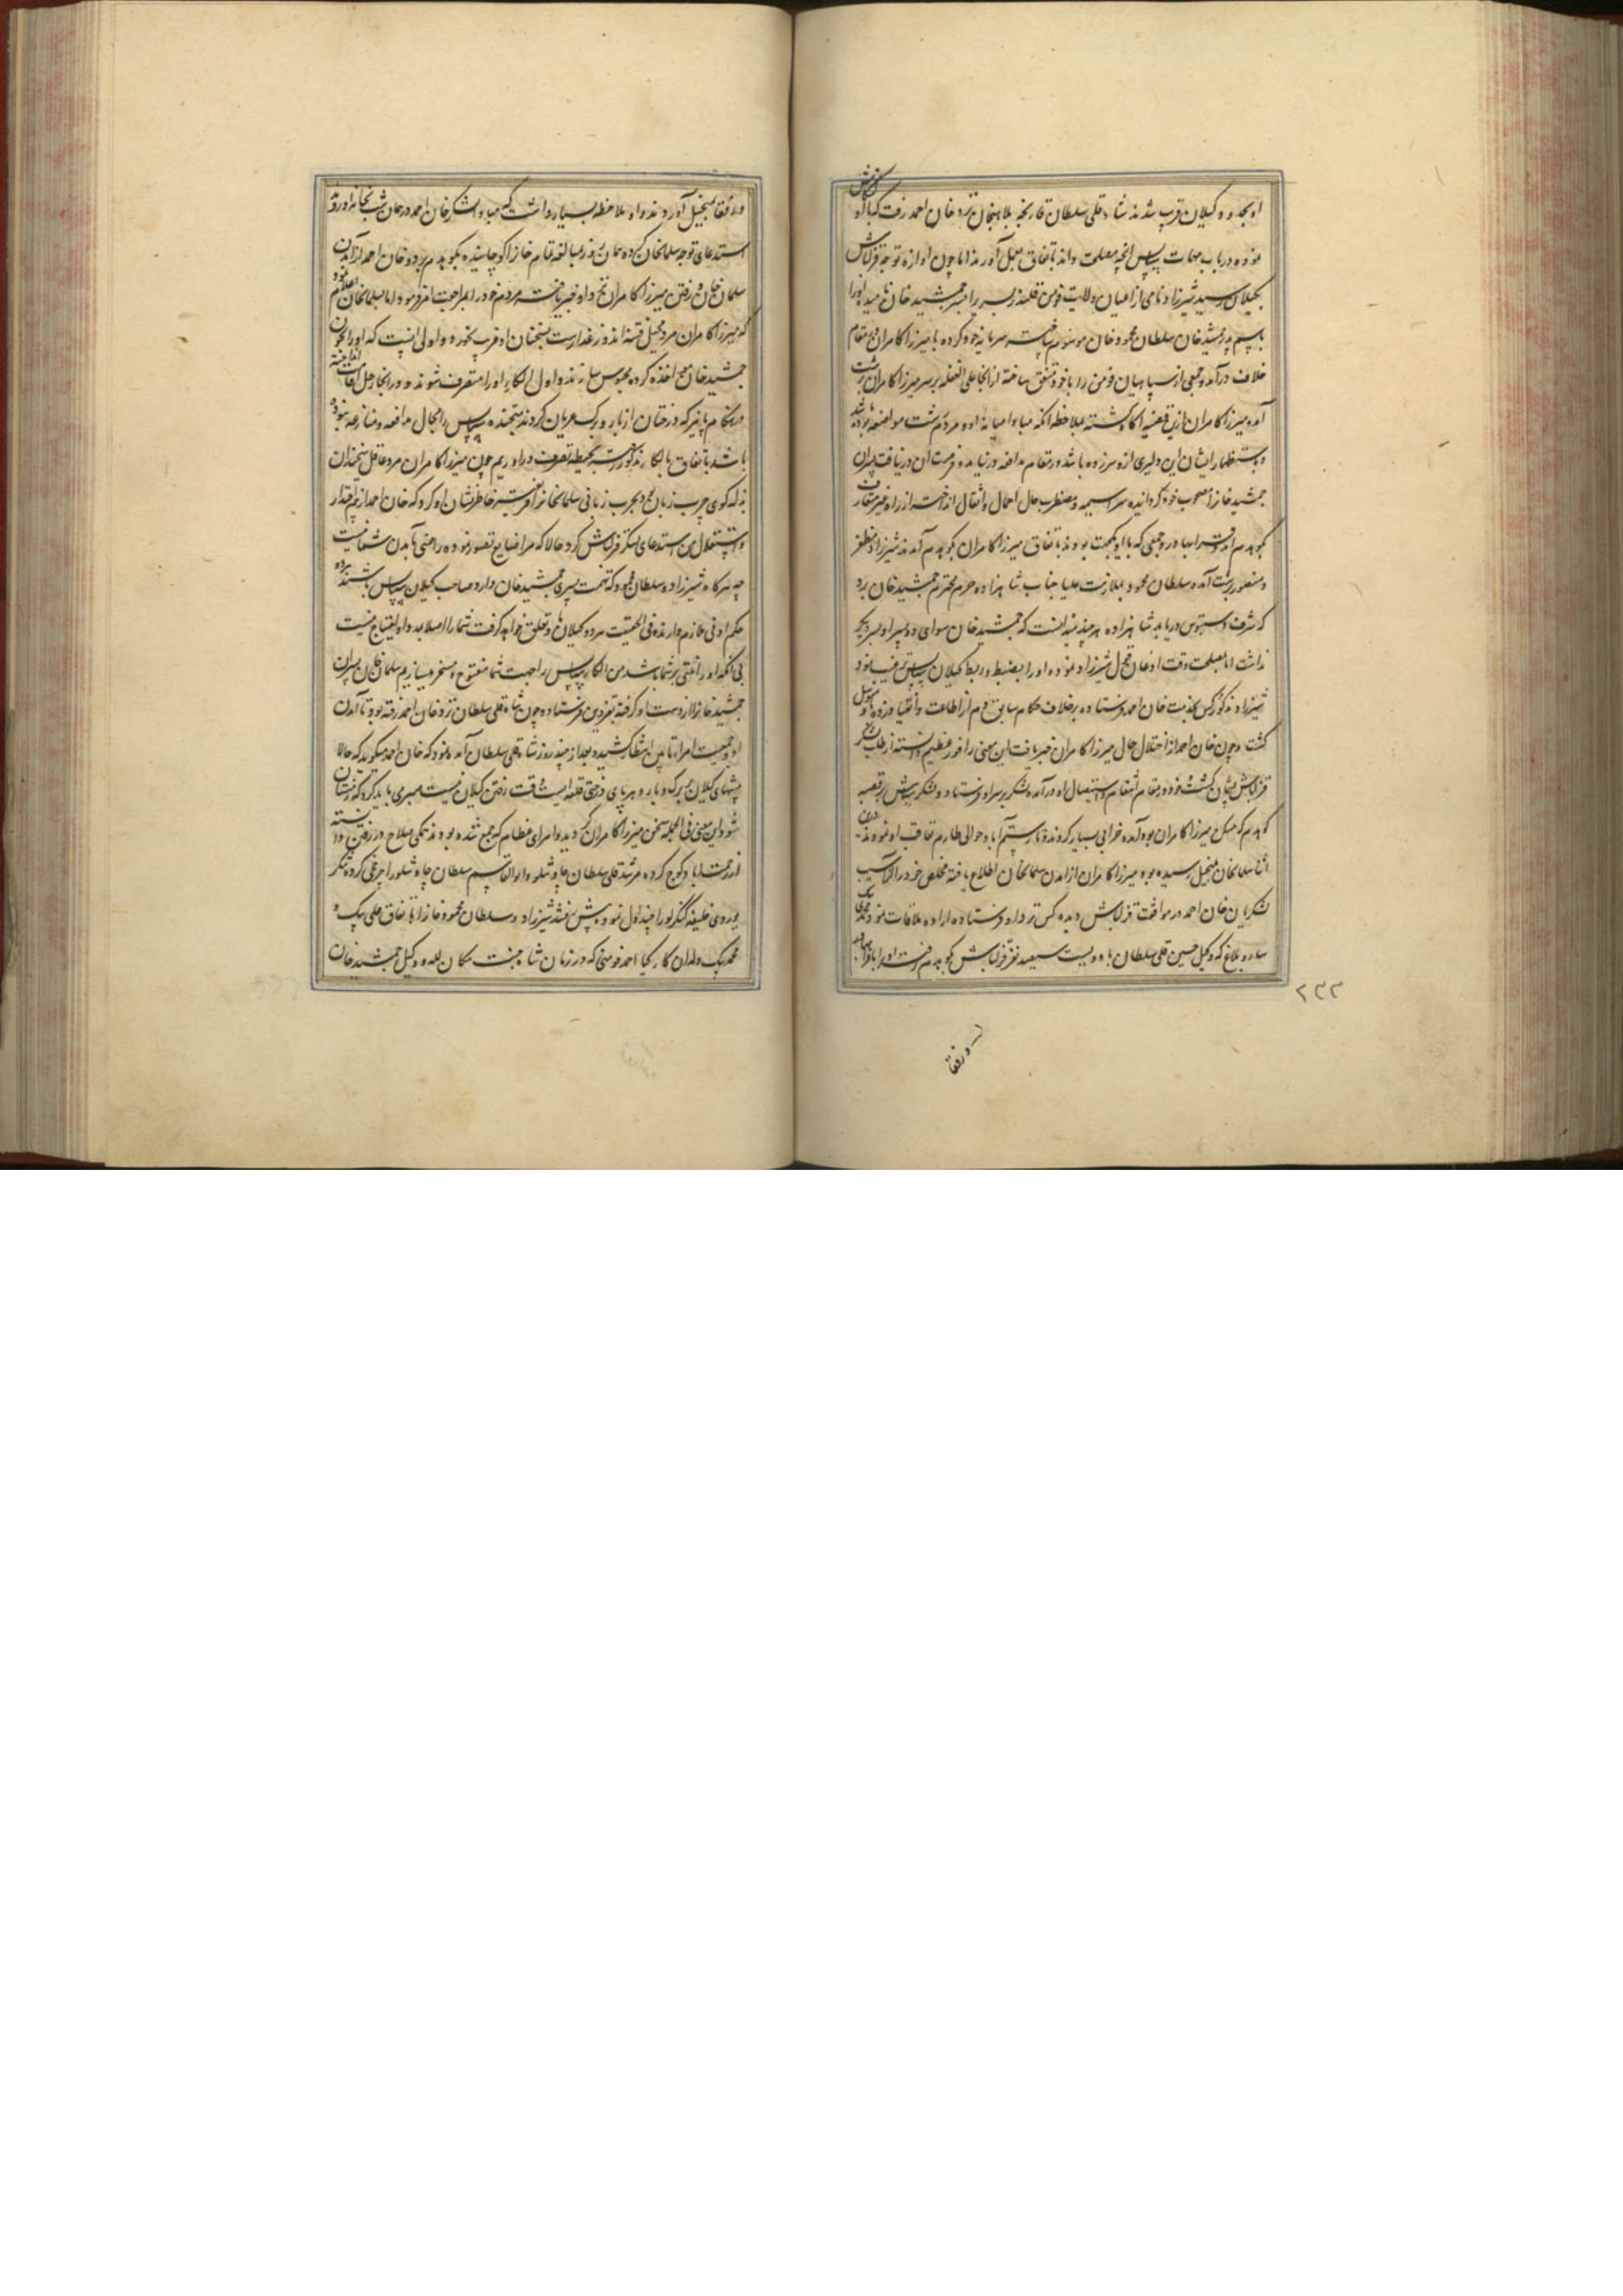 او بحدود کیلان قریب شدند شاه قلی سلطان قارنجه بلاهیجان نزد خان احمد رفت که با او
نموده در باب مهمات بیه پس آنچه مصلحت داند باتفاق بعمل آورند اما چون اوازه توجه قزلباش
بکیلان رسید شیرزاد نامی از اعیان ولایت فومن پسری را بپسر جمشید خان نامیده اورا
باسم پدر جمشید خان سلطان محمود خان موسوم ساخته سرمایه خود کرده با میرزا کامران در مقام
خلاف درآمد و جمعی از سپاهیان فومن را با خود متفق ساخته از انجا علی الغفله بر سر میرزا کامران برشت
آمد میرزا کامران ازین قضیه آکاه کشته بملاحظه آنکه مبادا میانه او و مردم رشت مواضعه بوده باشد
و باستظهار ایشان این دلیری ازو سر زده باشد در مقام مدافعه در نیامد و فرصت آن در نیافت پسران
جمشید خانرا مصحوب خود کردانیده سراسیمه و مضطرب حال احمال و اثقال انداخته از راه غیر متعارف
بکوهدم آمد و قرا بهادر و جمعی که با او یکجهت بودند باتفاق میرزا کامران بکوهدم آمدند شیرزاد مظفر
و منصور برشت آمده سلطان محمود بملازمت علیا جناب شاهزاده حرم محترم جمشید خان برد
که شرف دستبوس دریابد شاهزاده هر چند میدانست که جمشید خان سوای دو پسر او پسر دیکر
نداشت اما بمصلحت وقت اذعان قول شیرزاد نموده او را بضبط و ربط کیلان بیه پس ترغیب نمود
شیرزاد مذکور کس بخدمت خان احمد فرستاده برخلاف حکام سابق دم از اطاعت و انقیاد زده متوسل
کشت و چون خان احمد از اختلال حال میرزا کامران خبر یافت این معنی را فوز عظیم دانسته از طلب لشکر
قزلباش پشیمان کشت و در مقام انتقام و استیصال او درآمده لشکر بر سر او فرستاد و لشکر بیه پیش بر قصبه
کوهدم که مسکن میرزا کامران بود آمده خرابی بسیار کردند و تا رستم آباد حوالی طارم تعاقب او نمودند
اثنا سلمانخان بمنجیل رسیده بود میرزا کامران از آمدن سلمانخان اطلاع یافته مخلص خود را از آسیب
لشکریان خان احمد در موافقت قزلباش دیده کس نزد او فرستاده اراده ملاقات نمود
ساروبلاغ که وکیل حسین قلی سلطان با دویست سیصد نفر قزلباش بکوهدم رفت او را با
ورفقا
۲۳۳
ورفقا بمنجیل آوردند و او ملاحظه بسیار داشت که مبادا لشکر خان احمد در همان شب بخانه او روند
استدعای توجه سلمانخان کرده همان روز بمبالغه تمام خانرا کوچانیده بکوهدم برد و خان احمد از آمدن
سلمان خان و رفتن میرزا کامران نزد او خبر یافته مردم خود را بمراجعت امر فرمود اما بسلمانخان اعلام نمود
که میرزا کامران مرد محیل فتنه اندوز غدار است بسخنان او فریب نخورد و اولی انست که او را با پسران
جمشید خان اخذ کرده محبوس سازند و اول الکاء او را متصرف شوند و در انجا رحل اقامت انداخته
هنکام پائیز که درختان از بار و برک عریان کردند و جنود بیه پس را مجال مدافعه و منازعه نبوده
باشد باتفاق الکاء مذکور را بحیطه تصرف دراوریم چون میرزا کامران مرد عاقل سخندان
بذله کوی چرب زبان بود بچرب زبانی سلمانخانرا فریفته خاطر نشان او کرد که خان احمد از بیم اقتدار
و استقلال من استدعای لشکر قزلباش کرد حالا که مرا ضایع تصور نموده راضی بآمدن شما نیست
چه هرکاه شیرزاد و سلطان محمود که تهمت پسری جمشید خان دارد صاحب کیلان بیه پس باشند
حکم اونی ملازم دارند و فی الحقیقت هر دو کیلان باو تعلق خواهد کرفت شما را اصلا بمدد او احتیاج نیست
بی آنکه او را منتی بر شما باشد من الکاء بیه پس را جهت شما مفتوح و مسخر میسازیم سلمان خان پسران
جمشید خانرا از دست او کرفته بقزوین فرستاد و چون شاه قلی سلطان نزد خان احمد رفته بود تا آمدن
او و جمعیت امراء تابین انتظار کشید و بعد از چند روز شاه قلی سلطان آمده نمود که خان احمد میکوید که حالا
بیشهای کیلان پر برک و بار و هر پای درختی قلعه ایست وقت رفتن کیلان نیست صبر می باید کرد که زمستان
شود این معنی فی الجمله سخن میرزا کامران کردید و امرای عظام که جمع شده بودند همکی صلاح در رفتن دانسته
از رحمت اباد کوچ کرده مرشد قلی سلطان چاوشلو و ابوالقاسم سلطان چاوشلو را چرخی کرده شکر
بوردی خلیفه کنکرلو را چنداول نمود پیش رفتند شیرزاد و سلطان محمود خانرا باتفاق علی بیک و
محمد بیک ولدان کارکیا احمد فومنی که در زمان شاه جنت مکان لله و وکیل جمشید خان